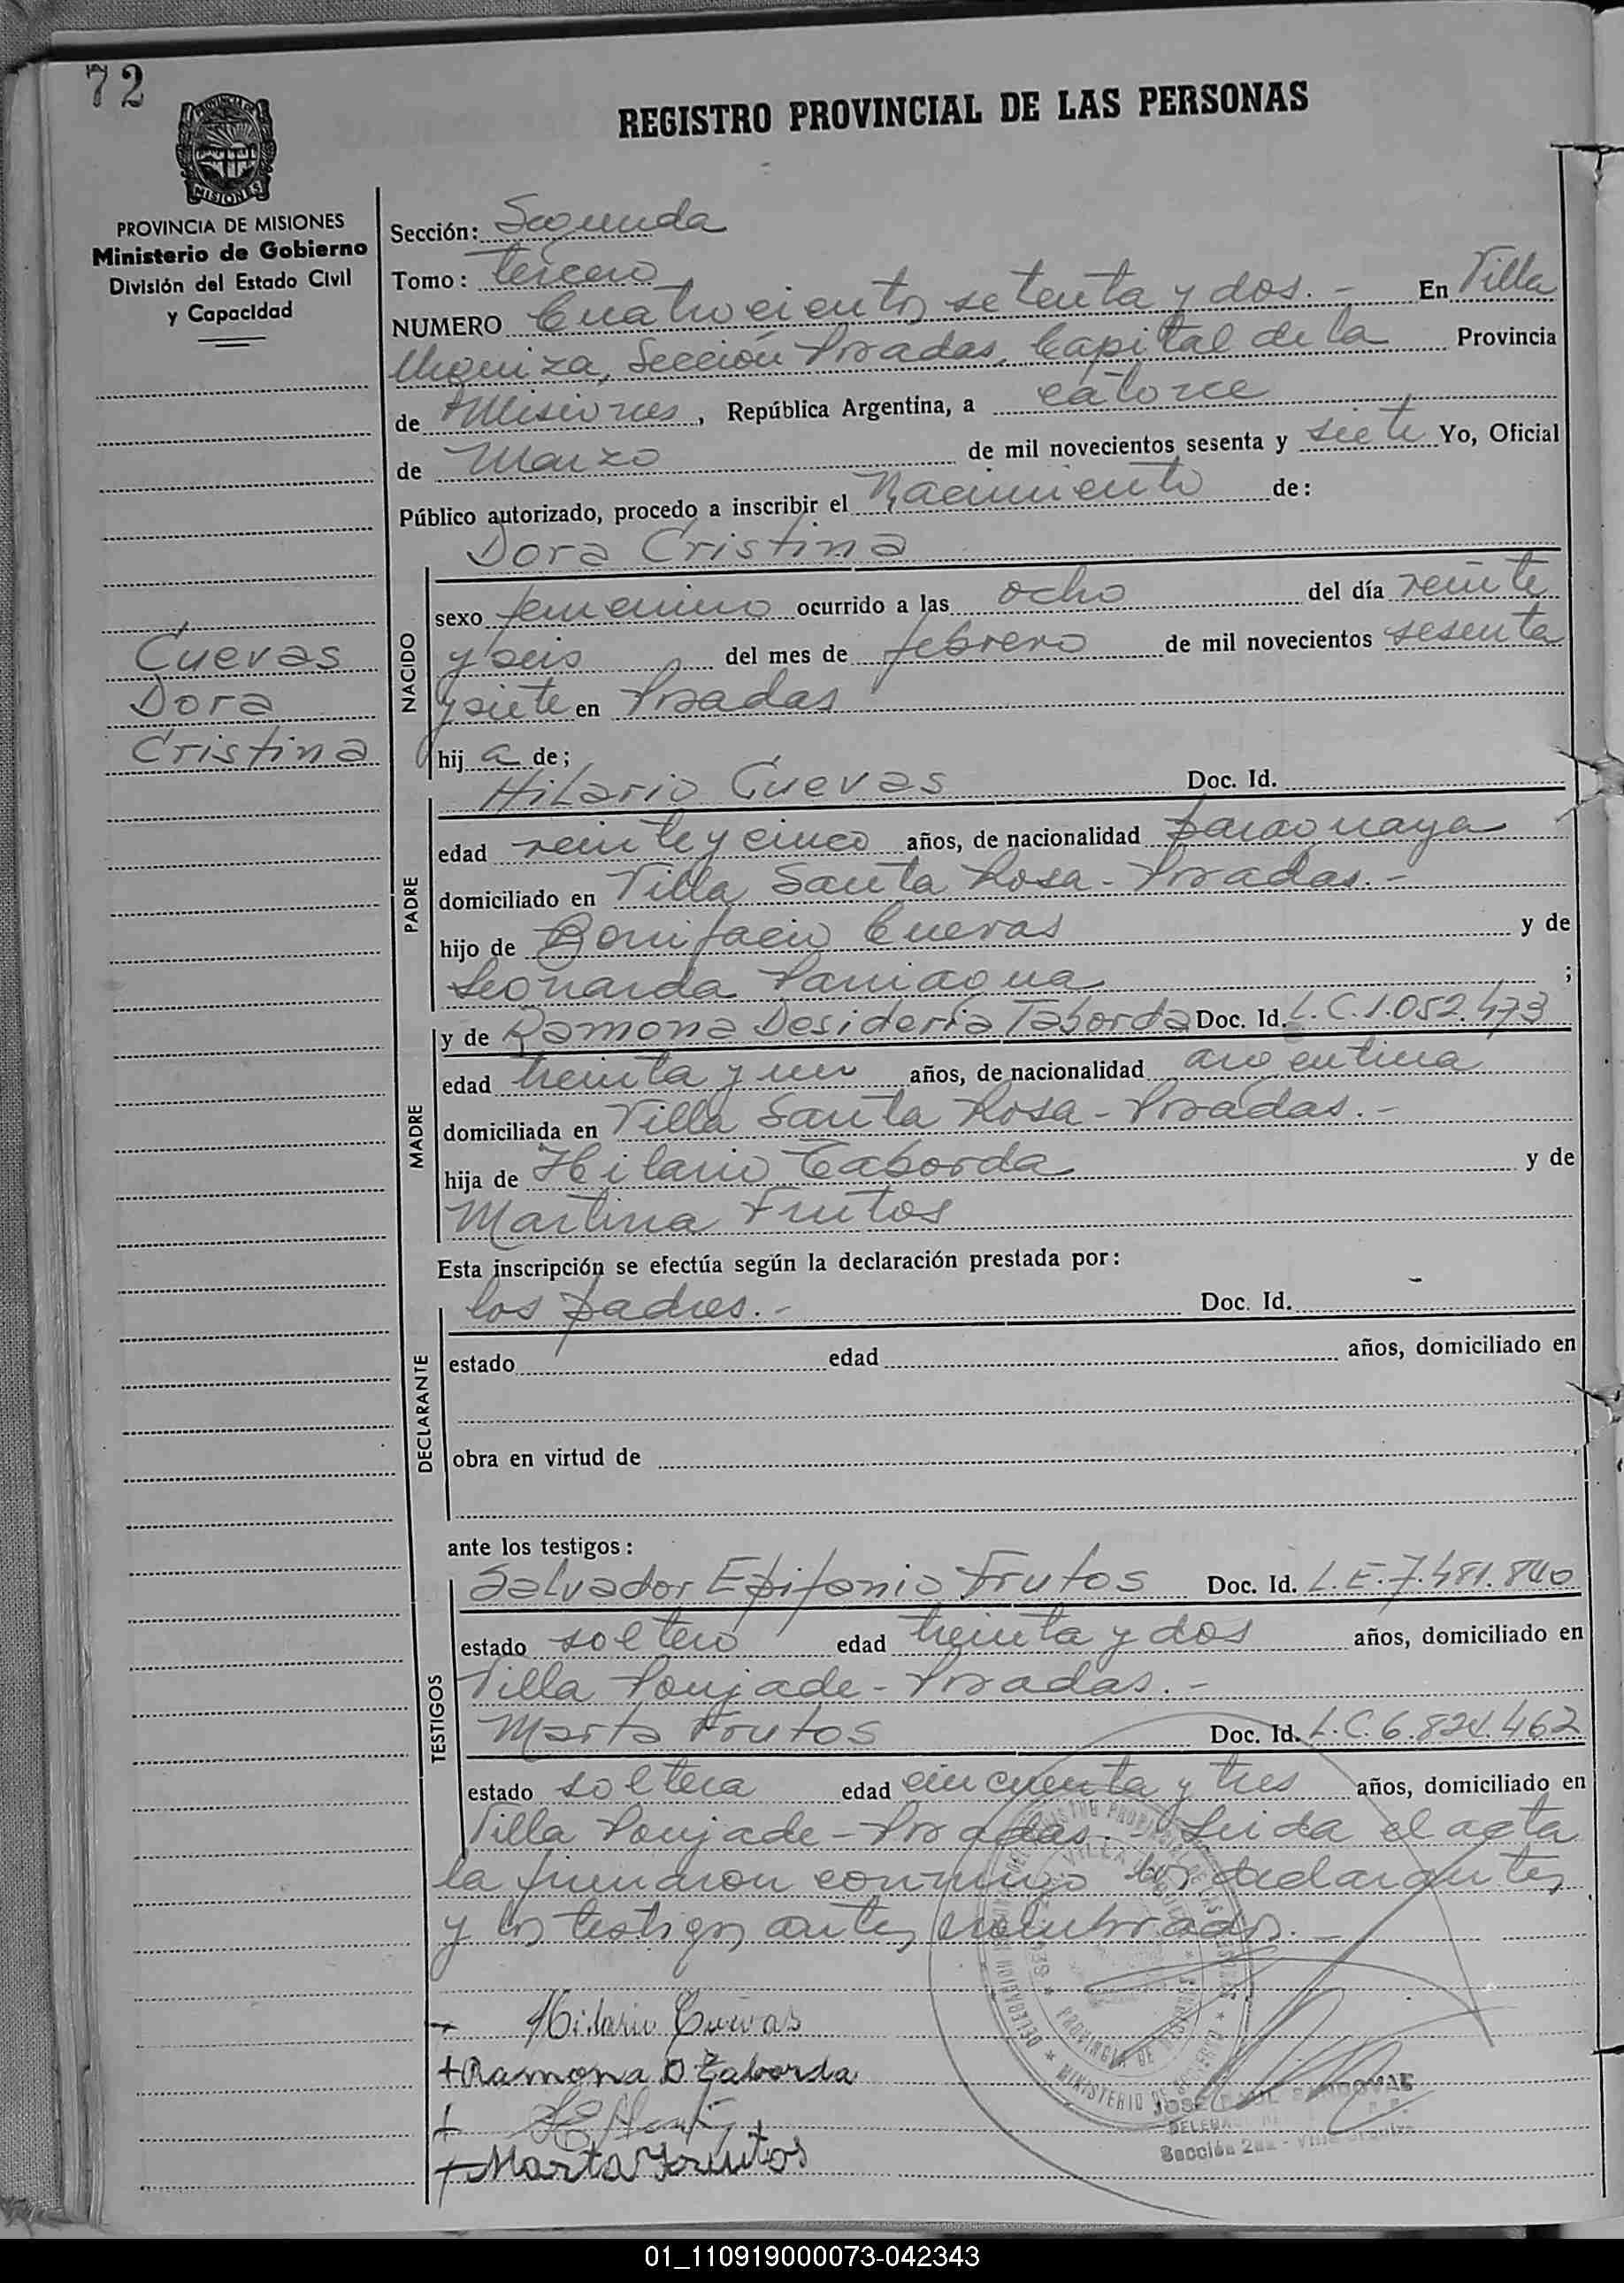 72
REGISTRO PROVINCIAL DE LAS PERSONAS
MISIONES
PROVINCIA DE MISIONES
Ministerio de Gobierno
División del Estado Civil
y Capacidad
Sección: Segunda
Tomo: tercero
NUMERO Cuatrocientos setenta y dos.- En Villa
Urquiza, Sección Posadas, Capital de la Provincia
de Misiones, República Argentina, a catorce
de Marzo de mil novecientos sesenta y siete Yo, Oficial
Público autorizado, procedo a inscribir el Nacimiento de:
Cuevas
Dora
Cristina
NACIDO
Dora Cristina
sexo femenino ocurrido a las ocho del día veinte
y seis del mes de febrero de mil novecientos sesenta
y siete en Posadas
hij a de;
PADRE
Hilario Cuevas Doc. Id.
edad veinte y cinco años, de nacionalidad paraguaya
domiciliado en Villa Santa Rosa - Posadas.-
hijo de Bonifacio Cuevas y de
Leonarda Paniagua ;
MADRE
y de Ramona Desideria Taborda Doc. Id. L.C.1.052.473
edad treinta y un años, de nacionalidad argentina
domiciliada en Villa Santa Rosa - Posadas.-
hija de Hilario Taborda y de
Martina Frutos
Esta inscripción se efectúa según la declaración prestada por:
DECLARANTE
los padres.- Doc. Id. -
estado edad años, domiciliado en
obra en virtud de
ante los testigos:
TESTIGOS
Salvador Epifanio Frutos Doc. Id. L.E.7.481.840
estado soltero edad treinta y dos años, domiciliado en
Villa Poujade - Posadas.-
Marta Frutos Doc. Id. L.C.6.824.462
estado soltera edad cincuenta y tres años, domiciliado en
Villa Poujade - Posadas.- Leida el acta
la firmaron conmigo los declarantes
y los testigos antes nombrados.-
Hilario Cuevas
+Ramona D Taborda
+
+Marta Frutos
MINISTERIO DE GOBIERNO
PROVINCIA DE MISIONES
JOSE RAUL SANDOVAL
Sección 2da - Villa Urquiza
01_110919000073-042343